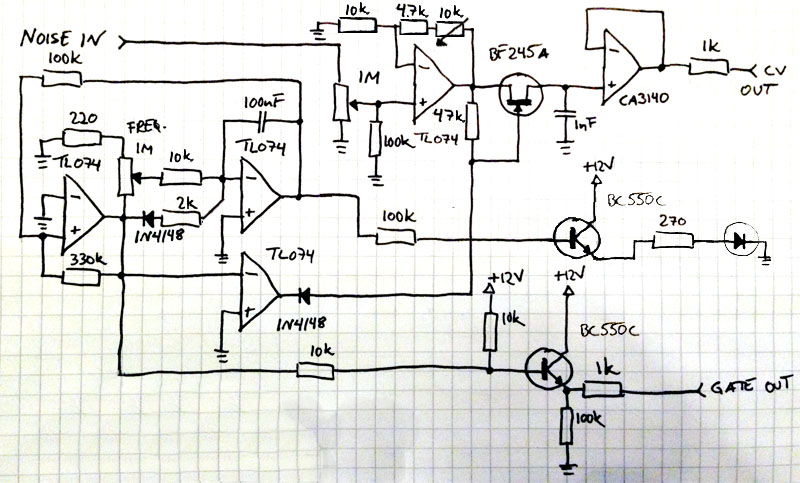 10k
4.7k
10k
NOISE IN
BF245A
100k
1M
1k
CV
OUT
CA3140
100nF
47k
1nF
220
FREQ.
1M
100k
TL074
TL074
10k
TL074
+12V
2k
BC550C
1N4148
100k
270
TL074
330k
+12V
+12V
1N4148
10k
BC550C
10k
1k
GATE OUT
100k